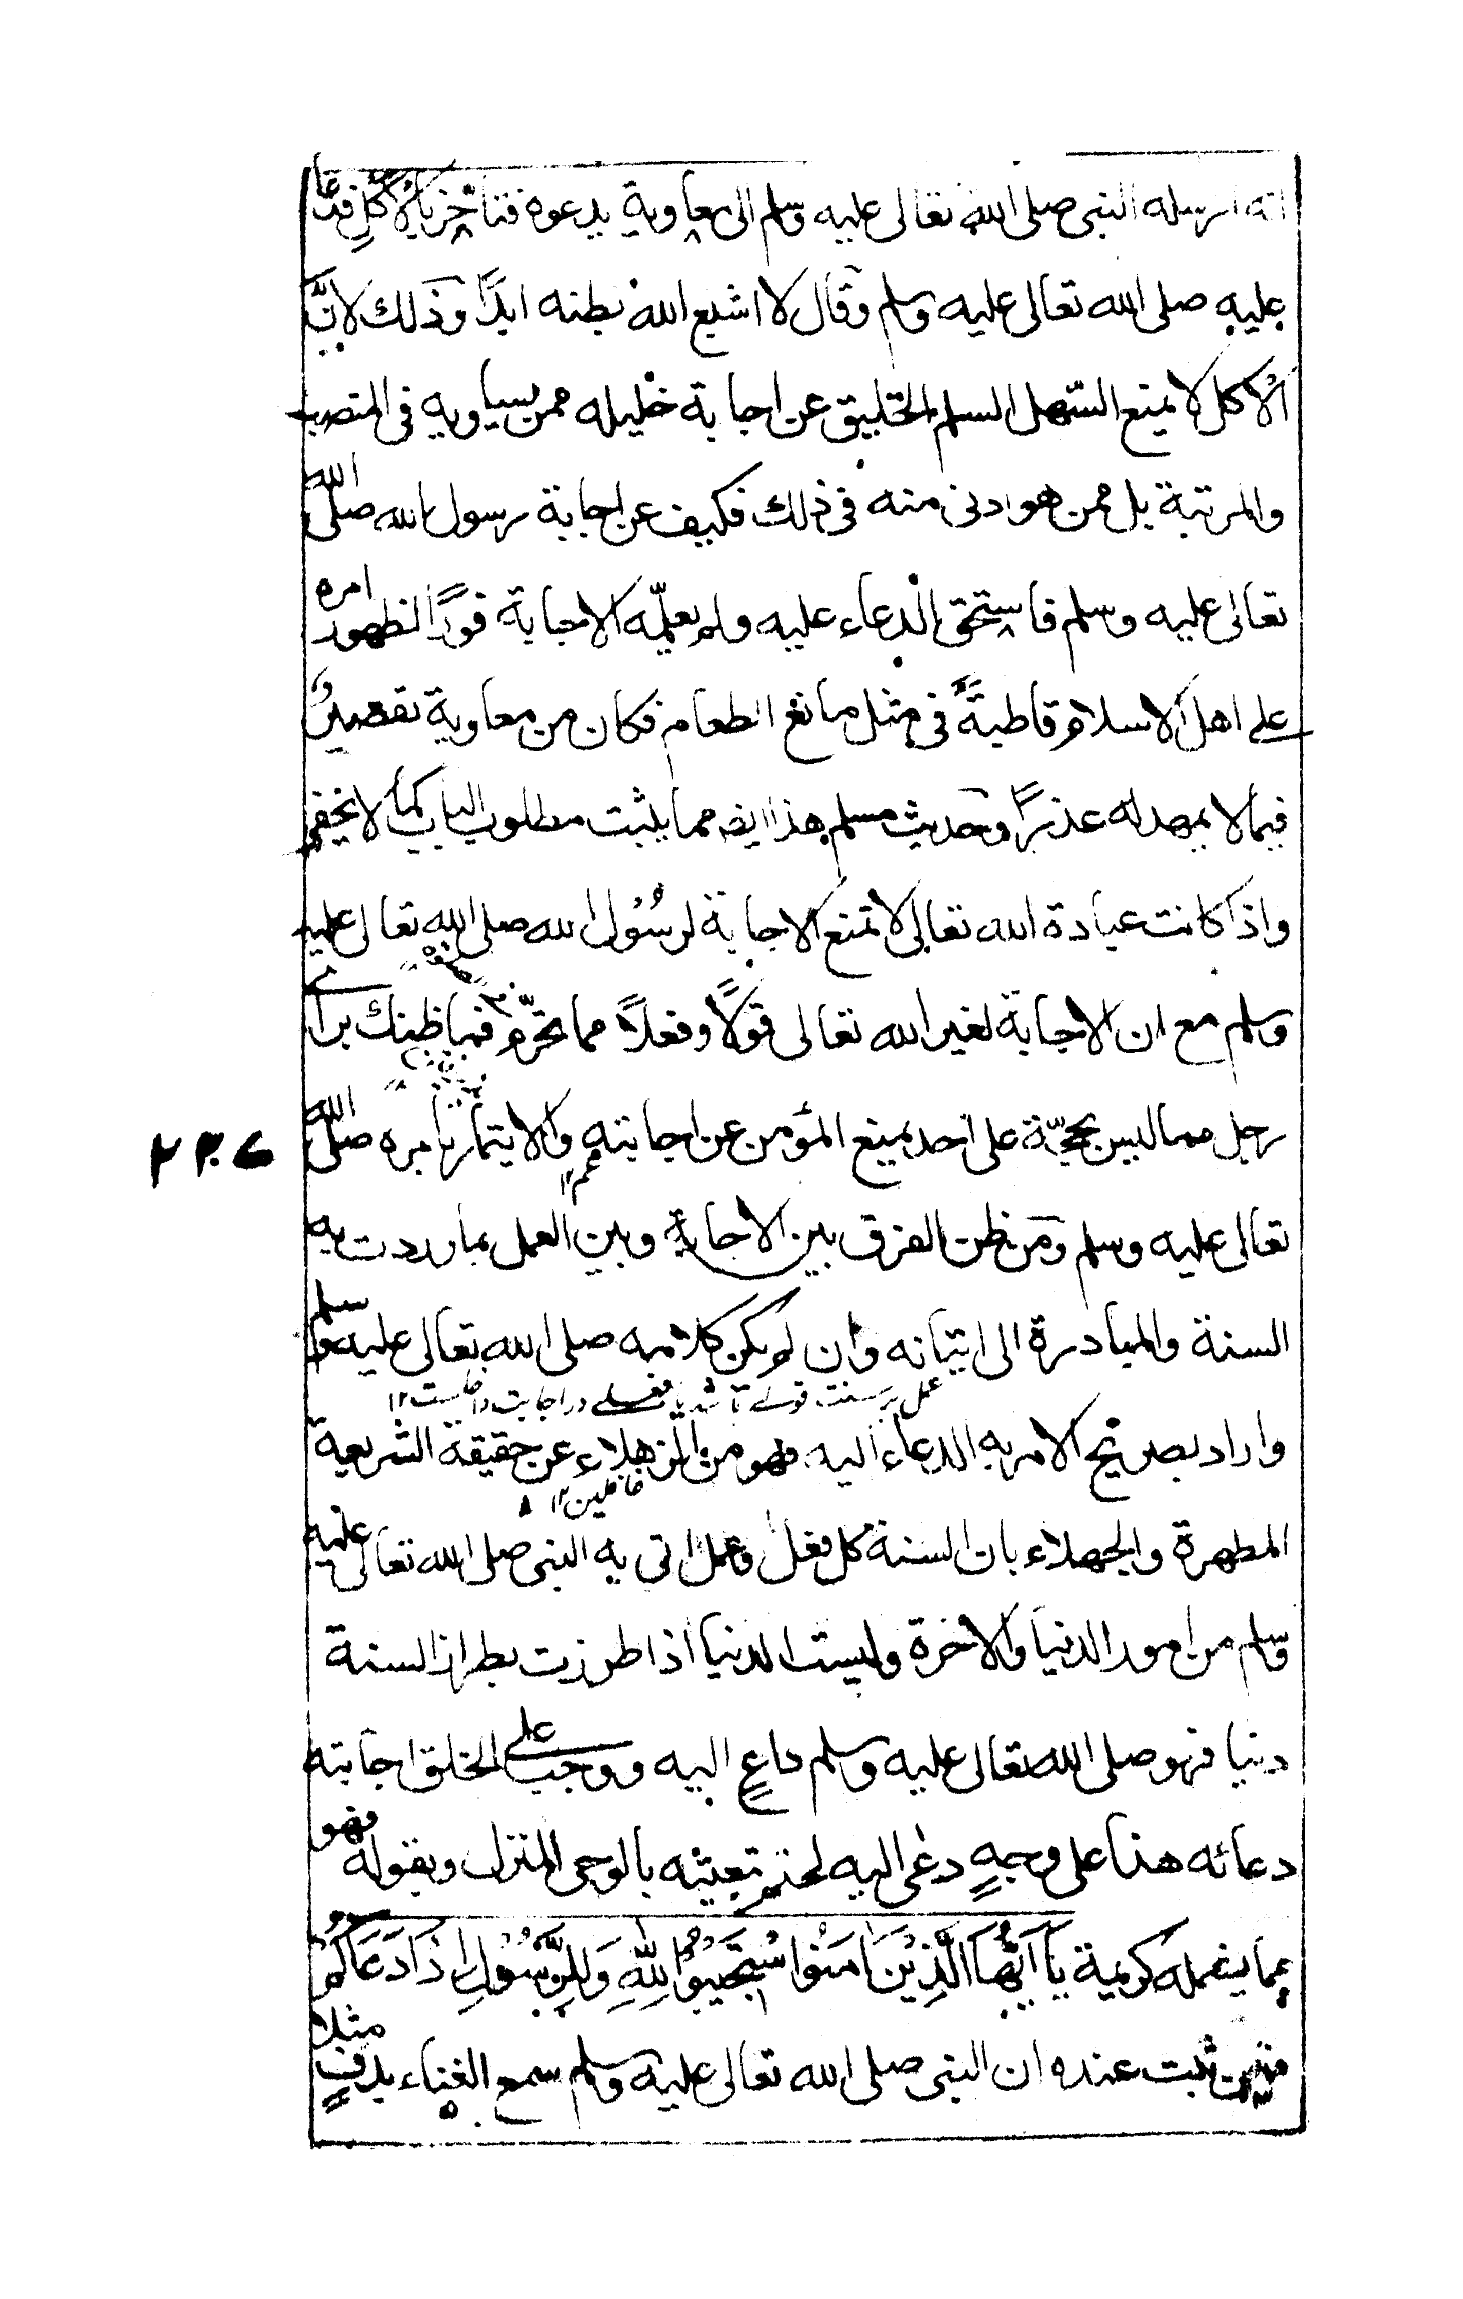 انه ارسله النبى صلى الله تعالى عليه وسلم الى معاوية يدعوه فتأخر بالاكل فدعا
عليه صلى الله تعالى عليه وسلم وقال لا اشبع الله بطنه ابدًا وذلك لانَّ
الاكل لا يمنع السّهل السلم الخليق عن اجابة خليله ممن يساويه فى المنصب
والمرتبة بل ممن هو ادنى منه فى ذلك فكيف عن اجابة رسول الله صلى الله
تعالى عليه وسلم فاستحق الدعاء عليه ولم يعلّمه الاجابة فورًا لظهور امره
على اهل الاسلام قاطبةً فى مثل مانع الطعام فكان من معاوية تقصيرٌ
فيما لا يمهد له عذرًا وحديث مسلم هذا ايضه مما يثبت مطلوب الباب كما لا يخفى
واذا كانت عبادة الله تعالى لا تمنع الاجابة لرسُول الله صلى الله تعالى عليه
وسلم مع ان الاجابة لغير الله تعالى قولًا وفعلًا مما يحرّم فما ظنك براى
رجل مما ليس بحجّة على احد يمنع المؤمن عن اجابته والايتمار بامره صلى الله
تعالى عليه وسلم ومن ظن الفرق بين الاجابة وبين العمل بما وردت به
السنة والمبادرة الى اتيانه وان لم يكن كلامه صلى الله تعالى عليه وسلم
عمل بر سنت قولے باشد يا فعلے در اجابت داخلست ١٢
واراد بصريح الامر به الدعاء اليه فهو من الذهلاء عن حقيقة الشريعة
غافلين ١٢
المطهرة والجهلاء بان السنة كل فعل وعمل اتى به النبى صلى الله تعالى عليه
وسلم من امور الدنيا والاخرة وليست الدنيا اذا طرزت بطراز السنة
دنيا فهو صلى الله تعالى عليه وسلم داعٍ اليه ووجب على الخلق اجابته
دعائه هذا على وجهٍ دعى اليه لحتم تبعيثه بالوحى المنزل وبقوله فهو
مما يشمله كريمة يَا اَيُّهَا الَّذِيْنَ اٰمَنُوا اسْتَجِيبُوْا لِلّٰهِ وَلِلرَّسُوْلِ اِذَا دَعَاكُمْ
فمن ثبت عنده ان النبى صلى الله تعالى عليه وسلم سمع الغناء بدفٍ مثلا
٢٣٠٦